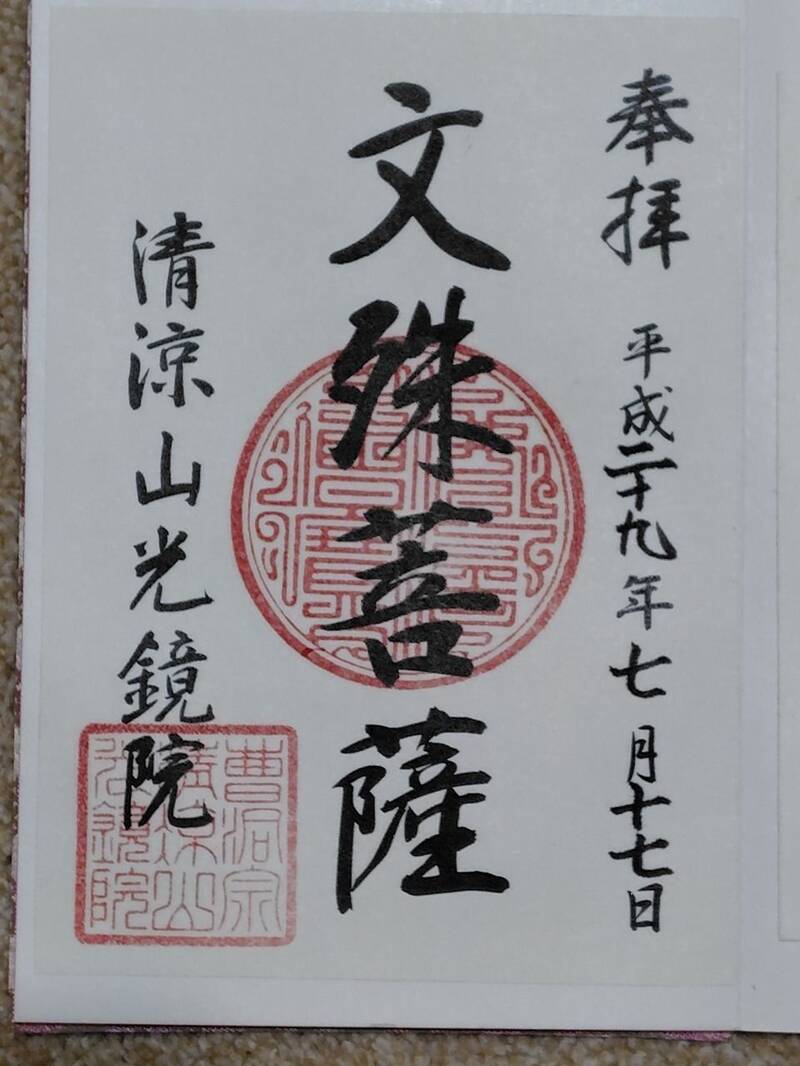 奉拝 平成二十九年七月十七日
文殊菩薩
清涼山光鏡院
曹洞宗
清涼山
光鏡院